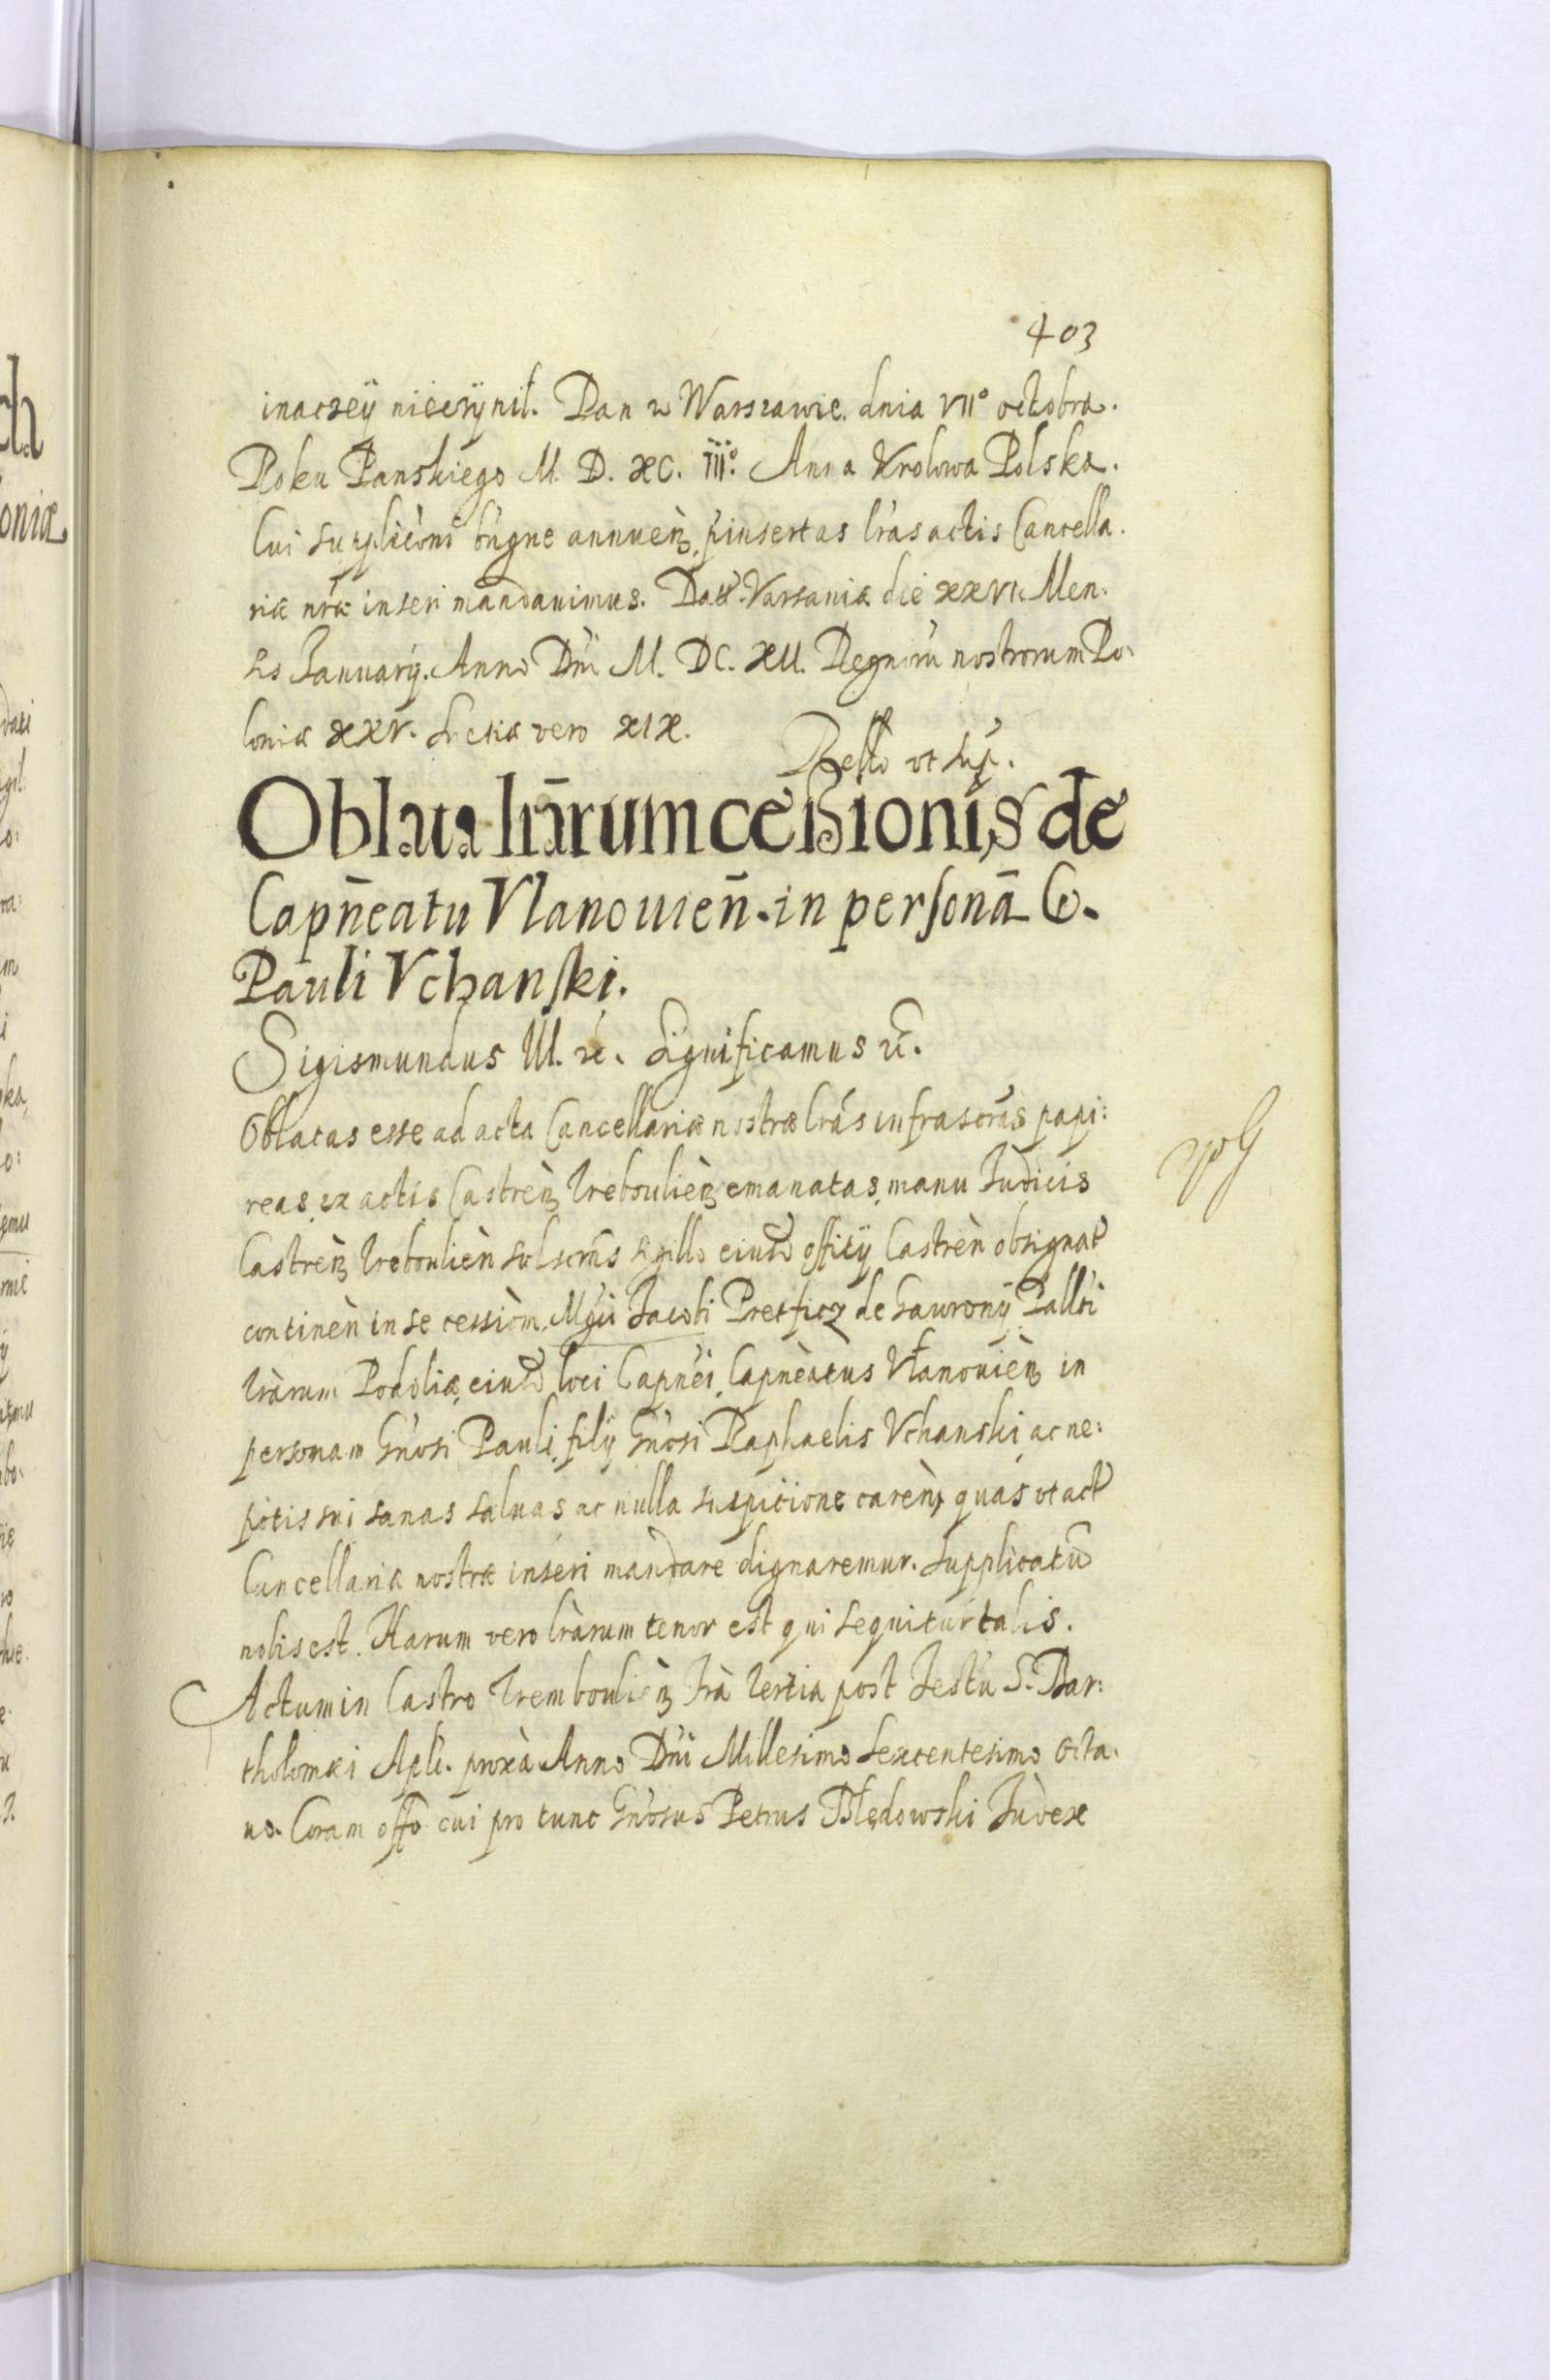 403
inaczeÿ nieczÿnił. Dan w Warszawie. dnia VII° octobra.
Roku Panskiego M. D. XC. III°. Anna Krolowa Polska.
Cui supplicõni bñgne annueñ, pinsertas lr̃as actis Cancella.
riæ nr̃æ inseri mandauimus. Dat. Varsauiæ die XXVI. Men.
sis Januarÿ. Anno Dñi M. DC. XII. Regnorũ nostrorum Po.
loniæ XXV. Sueciæ vero XIX.
Rello vt sup.
Oblata lr̃arum ceßionis de
Capñeatu Vlanouieñ. in personã G.
Pauli Vchanski.
Sigismundus III. &c. Significamus &c.
Oblatas esse ad acta Cancellariæ nostræ lr̃as infrascr̃as papi:
reas, ex actis Castreñ Treboulieñ emanatas, manu Judicis
Castreñ Treboulieñ subscr̃as sigillo eiusd officÿ Castreñ obsignat
contineñ in se cessiõm. Mgci Jacobi Pretficz de Gawronÿ Pallti
Trr̃arum Podoliæ, eiusd loci Capñei, Capñeatus Vłanouieñ in
personam Gñosi Pauli, filÿ Gñosi Raphaelis Vchanski ac ne:
potis sui sanas saluas ac nulla suspicione careñ, quas vt act
Cancellariæ nostræ inseri mandare dignaremur. Supplicatũ
nobis est. Harum vero lr̃arum tenor est qui sequitur talis.
Actum in Castro Tremboulieñ fr̃a tertia post festũ S. Bar:
tholomæi Apli. proxa Anno Dñi Millesimo Sexcentesimo Octa.
uo. Coram offo cui pro tunc Gñosus Petrus Błędowski Judex